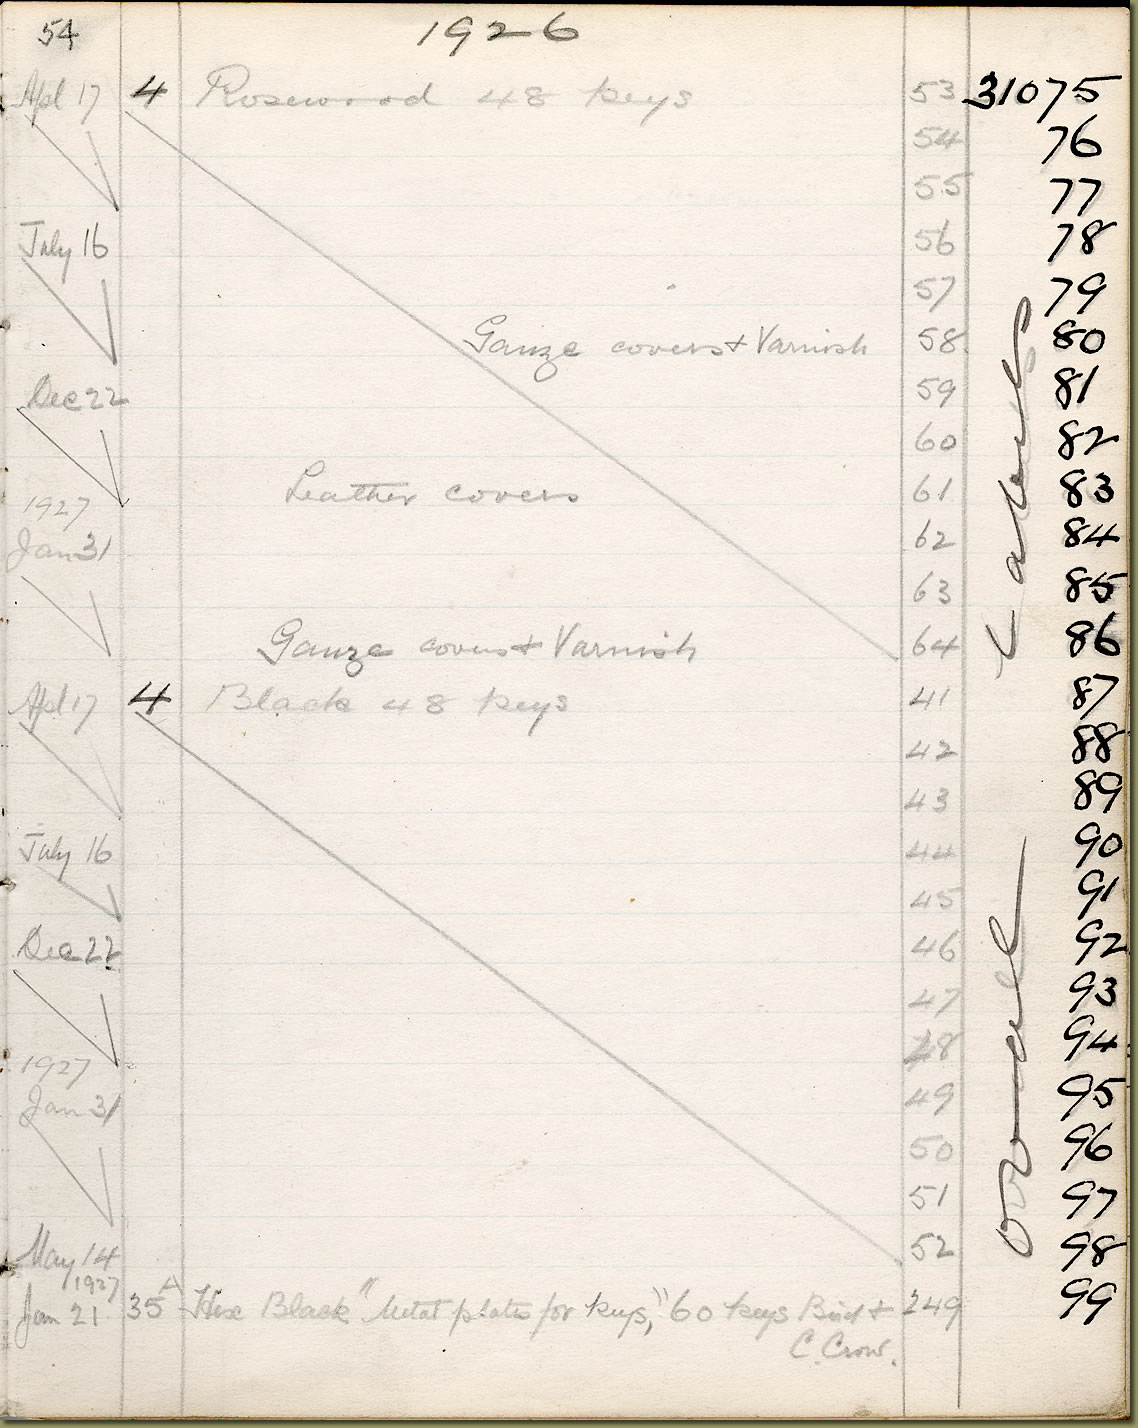 54 1926
Apl 17 4 Rosewood 48 keys 53 31075
54 76
55 77
July 16 56 78
57 79
Gauze covers + Varnish 58 80
Dec 22 59 81
60 82
1927 Leather covers 61 83
Jan 31 62 84
63 85
Gauze covers + Varnish 64 86
Apl 17 4 Black 48 keys 41 87
42 88
43 89
July 16 44 90
45 91
Dec 22 46 92
47 93
1927 48 94
Jan 31 49 95
50 96
51 97
May 14 52 98
1927
Jan 21 35A Hex Black "Metal plates for keys," 60 keys Bird + 249 99
C. Crow.